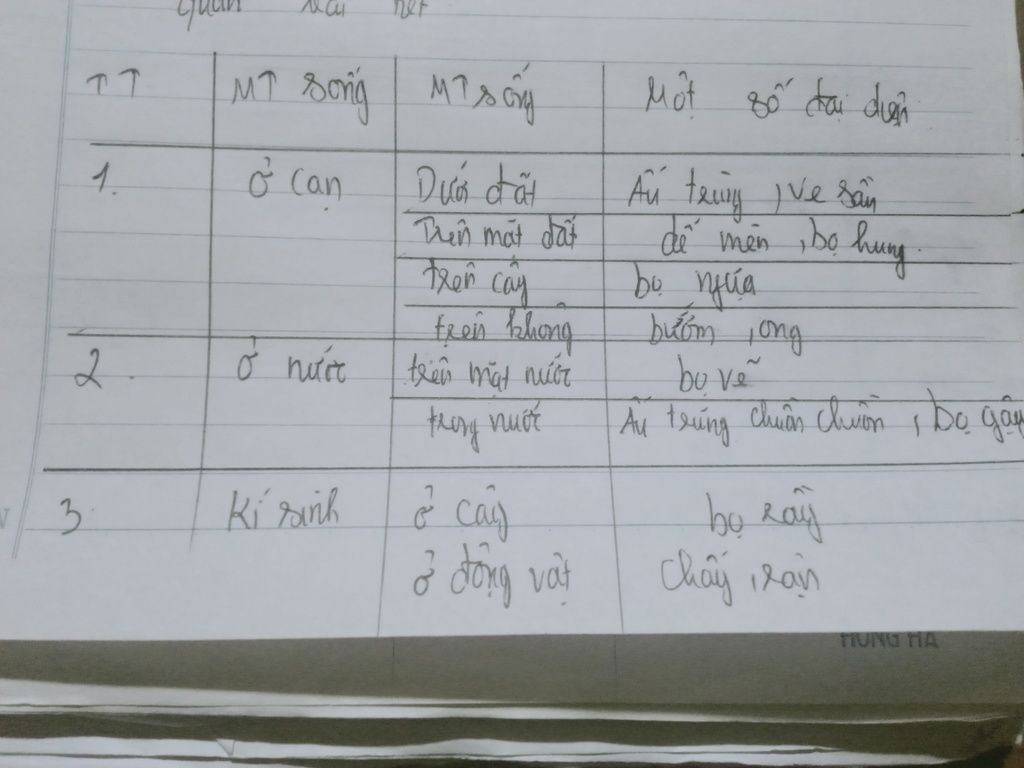 TT MT sống MT sống Một số đại diện
1. ở cạn Dưới đất Ấu trùng, ve sầu
Trên mặt đất dế mèn, bọ hung.
trên cây bọ ngựa
trên không bướm, ong
2. ở nước trên mặt nước bọ vẽ
trong nước Ấu trùng chuồn chuồn, bọ gậy
3 Kí sinh ở cây bọ rầy
ở động vật Chấy, rận
HUNG HA